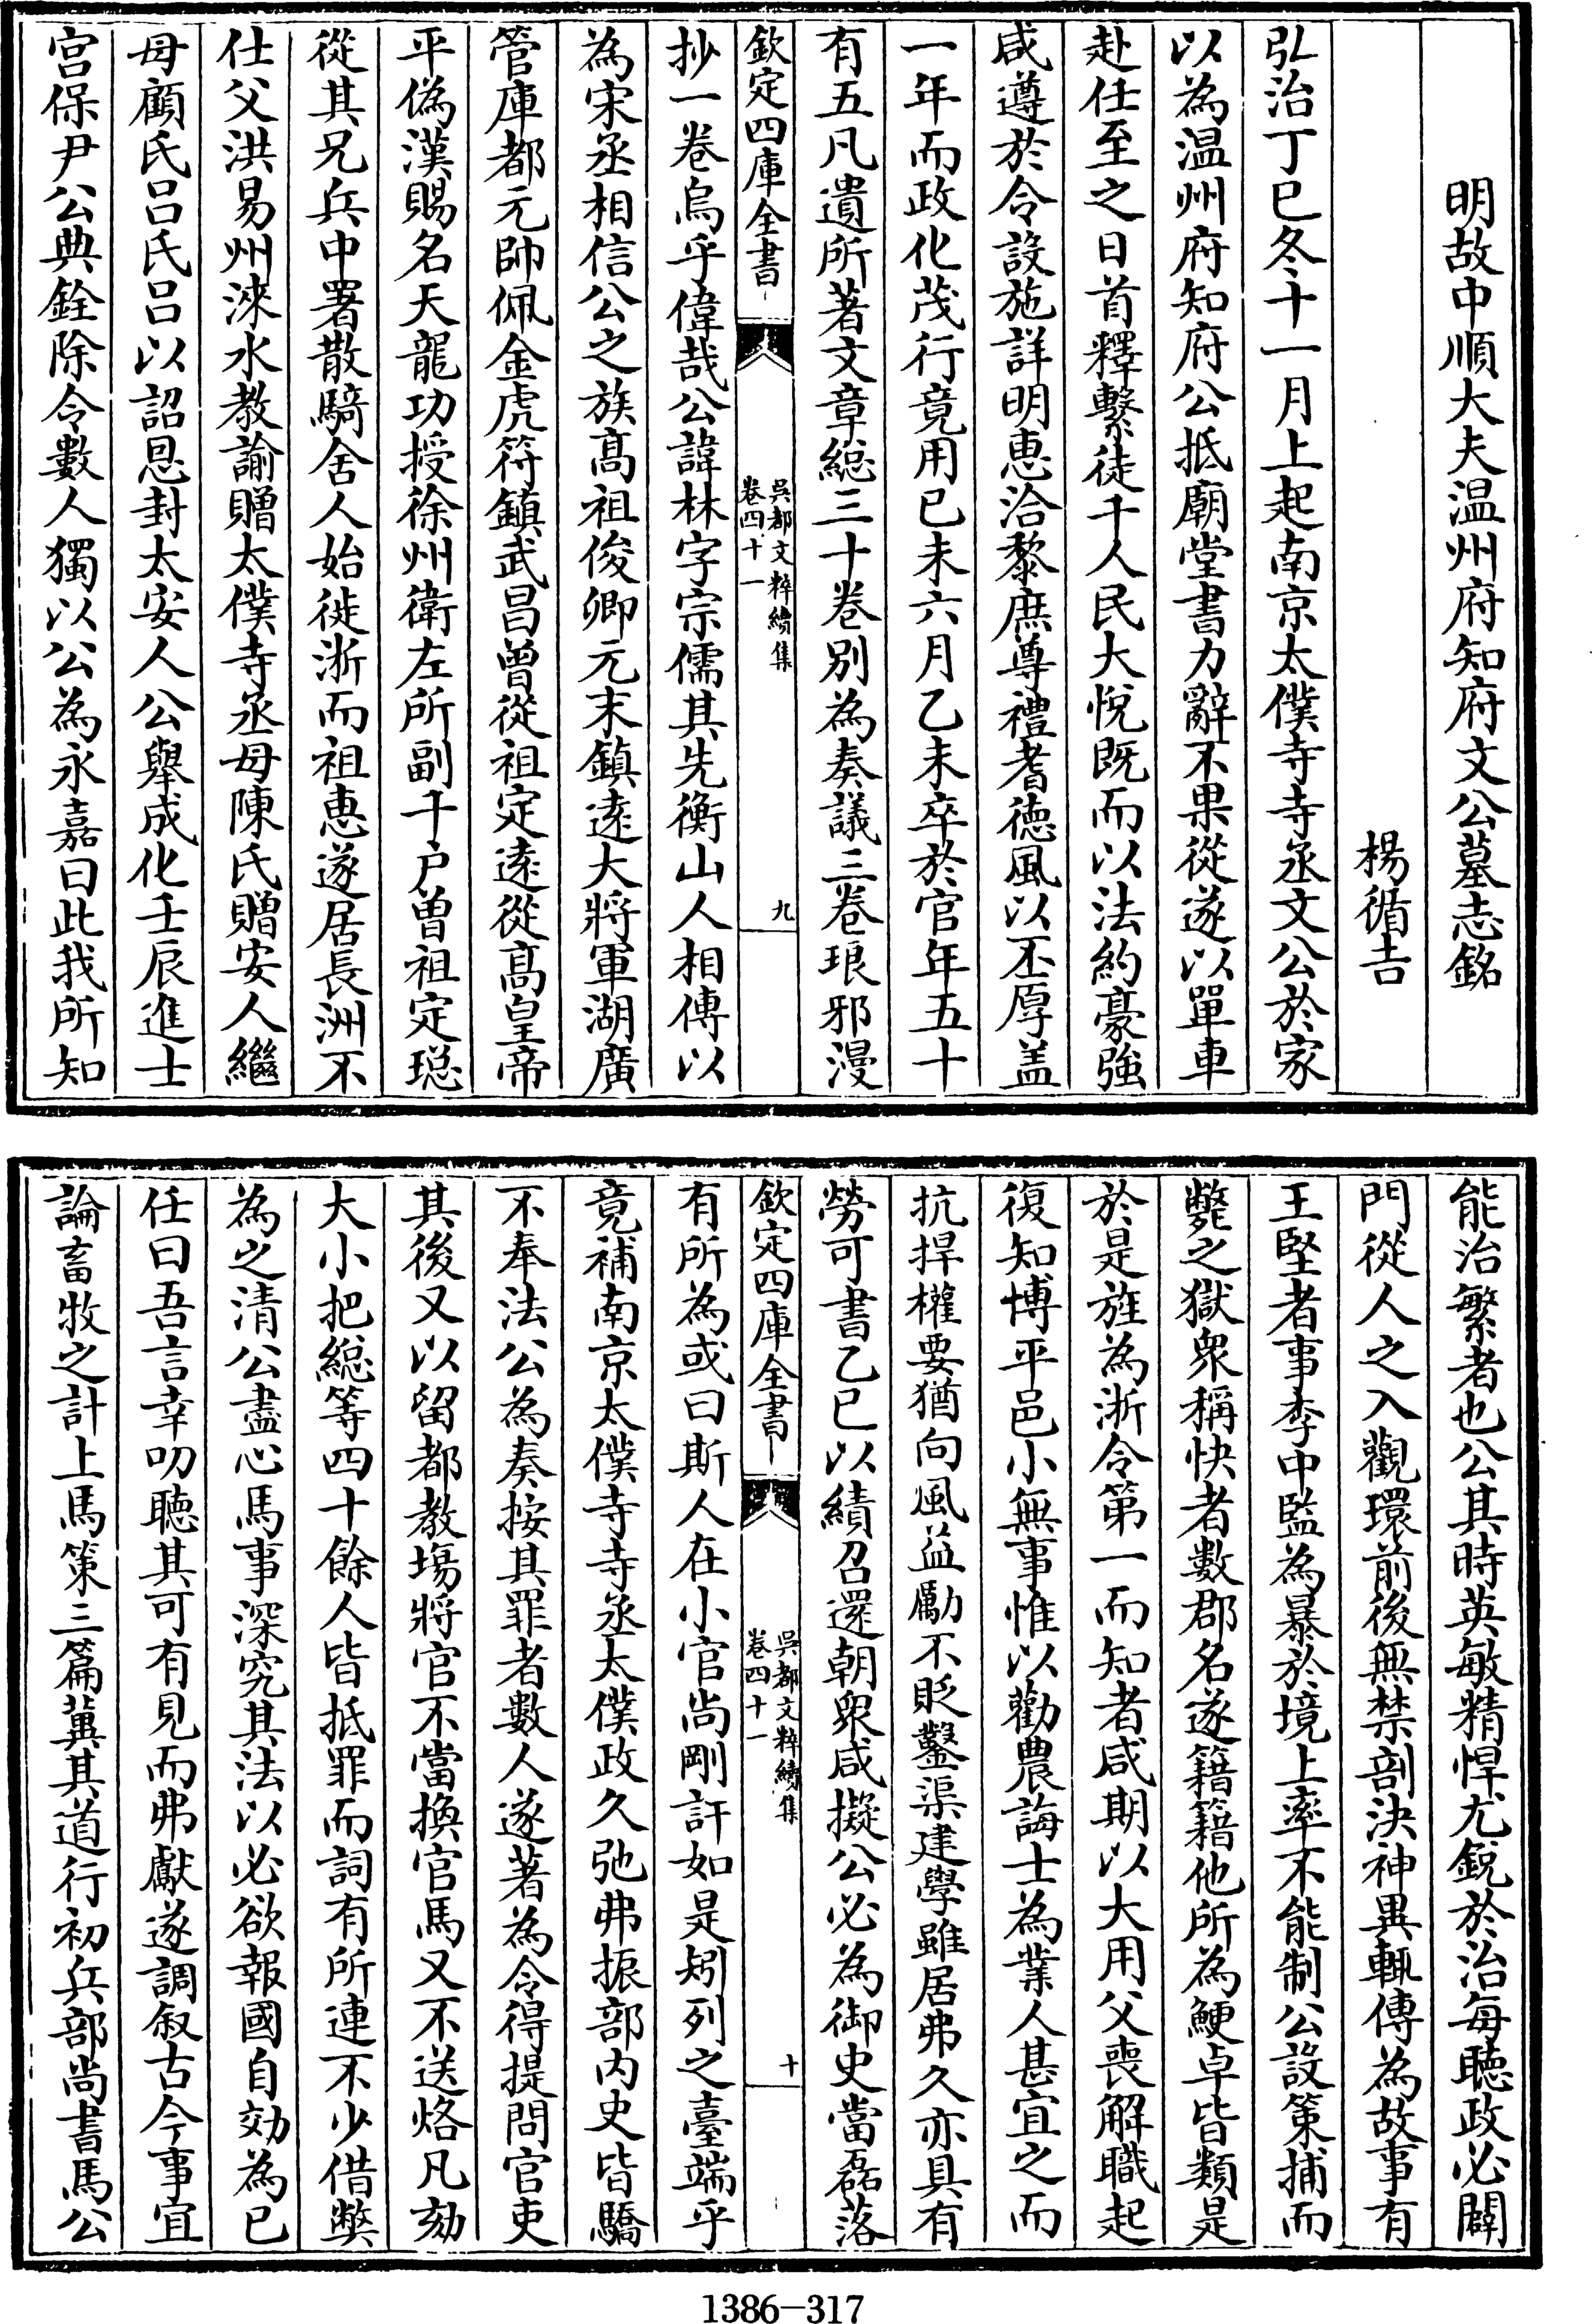 明故中順大夫温州府知府文公墓志銘
楊循吉
弘治丁巳冬十一月上起南京太僕寺寺丞文公於家
以為温州府知府公抵廟堂書力辭不果從遂以單車
赴任至之日首釋繫徒千人民大悦既而以法約豪強
咸遵於令設施詳明恵洽黎庶尊禮耆徳風以丕厚盖
一年而政化茂行竟用已未六月乙未卒於官年五十
有五凡遺所著文章緫三十卷别為奏議三卷琅邪漫
欽定四庫全書
吳都文粹續集
卷四十一
九
抄一卷烏乎偉哉公諱林字宗儒其先衡山人相傳以
為宋丞相信公之族髙祖俊卿元末鎮逺大將軍湖廣
管庫都元帥佩金虎符鎮武昌曾從祖定逺從髙皇帝
平偽漢賜名天龍功授徐州衛左所副千户曽祖定聡
從其兄兵中署散騎舍人始徙浙而祖惠遂居長洲不
仕父洪易州淶水教諭贈太僕寺丞母陳氏贈安人繼
母顧氏吕氏吕以詔恩封太安人公舉成化壬辰進士
宫保尹公典銓除令數人獨以公為永嘉曰此我所知
能治繁者也公其時英敏精悍尤鋭於治每聴政必闢
門從人之入觀環前後無禁剖決神異輒傳為故事有
王堅者事李中監為暴於境上率不能制公設策捕而
斃之獄衆稱快者數郡名遂籍籍他所為鯁卓皆類是
於是旌為浙令第一而知者咸期以大用父喪解職起
復知博平邑小無事惟以勸農誨士為業人甚宜之而
抗捍權要猶向風益勵不貶鑿渠建學雖居弗久亦具有
勞可書乙巳以績召還朝衆咸擬公必為御史當磊落
欽定四庫全書
吳都文粹續集
卷四十一
十
有所為或曰斯人在小官尚剛訐如是矧列之臺端乎
竟補南京太僕寺寺丞太僕政久弛弗振部内吏皆驕
不奉法公為奏按其罪者數人遂著為令得提問官吏
其後又以留都教塲將官不當換官馬又不送烙凡劾
大小把緫等四十餘人皆抵罪而詞有所連不少借弊
為之清公盡心馬事深究其法以必欲報國自効為已
任曰吾言幸叨聴其可有見而弗獻遂調叙古今事宜
論畜牧之計上馬策三篇冀其道行初兵部尚書馬公
1386-317